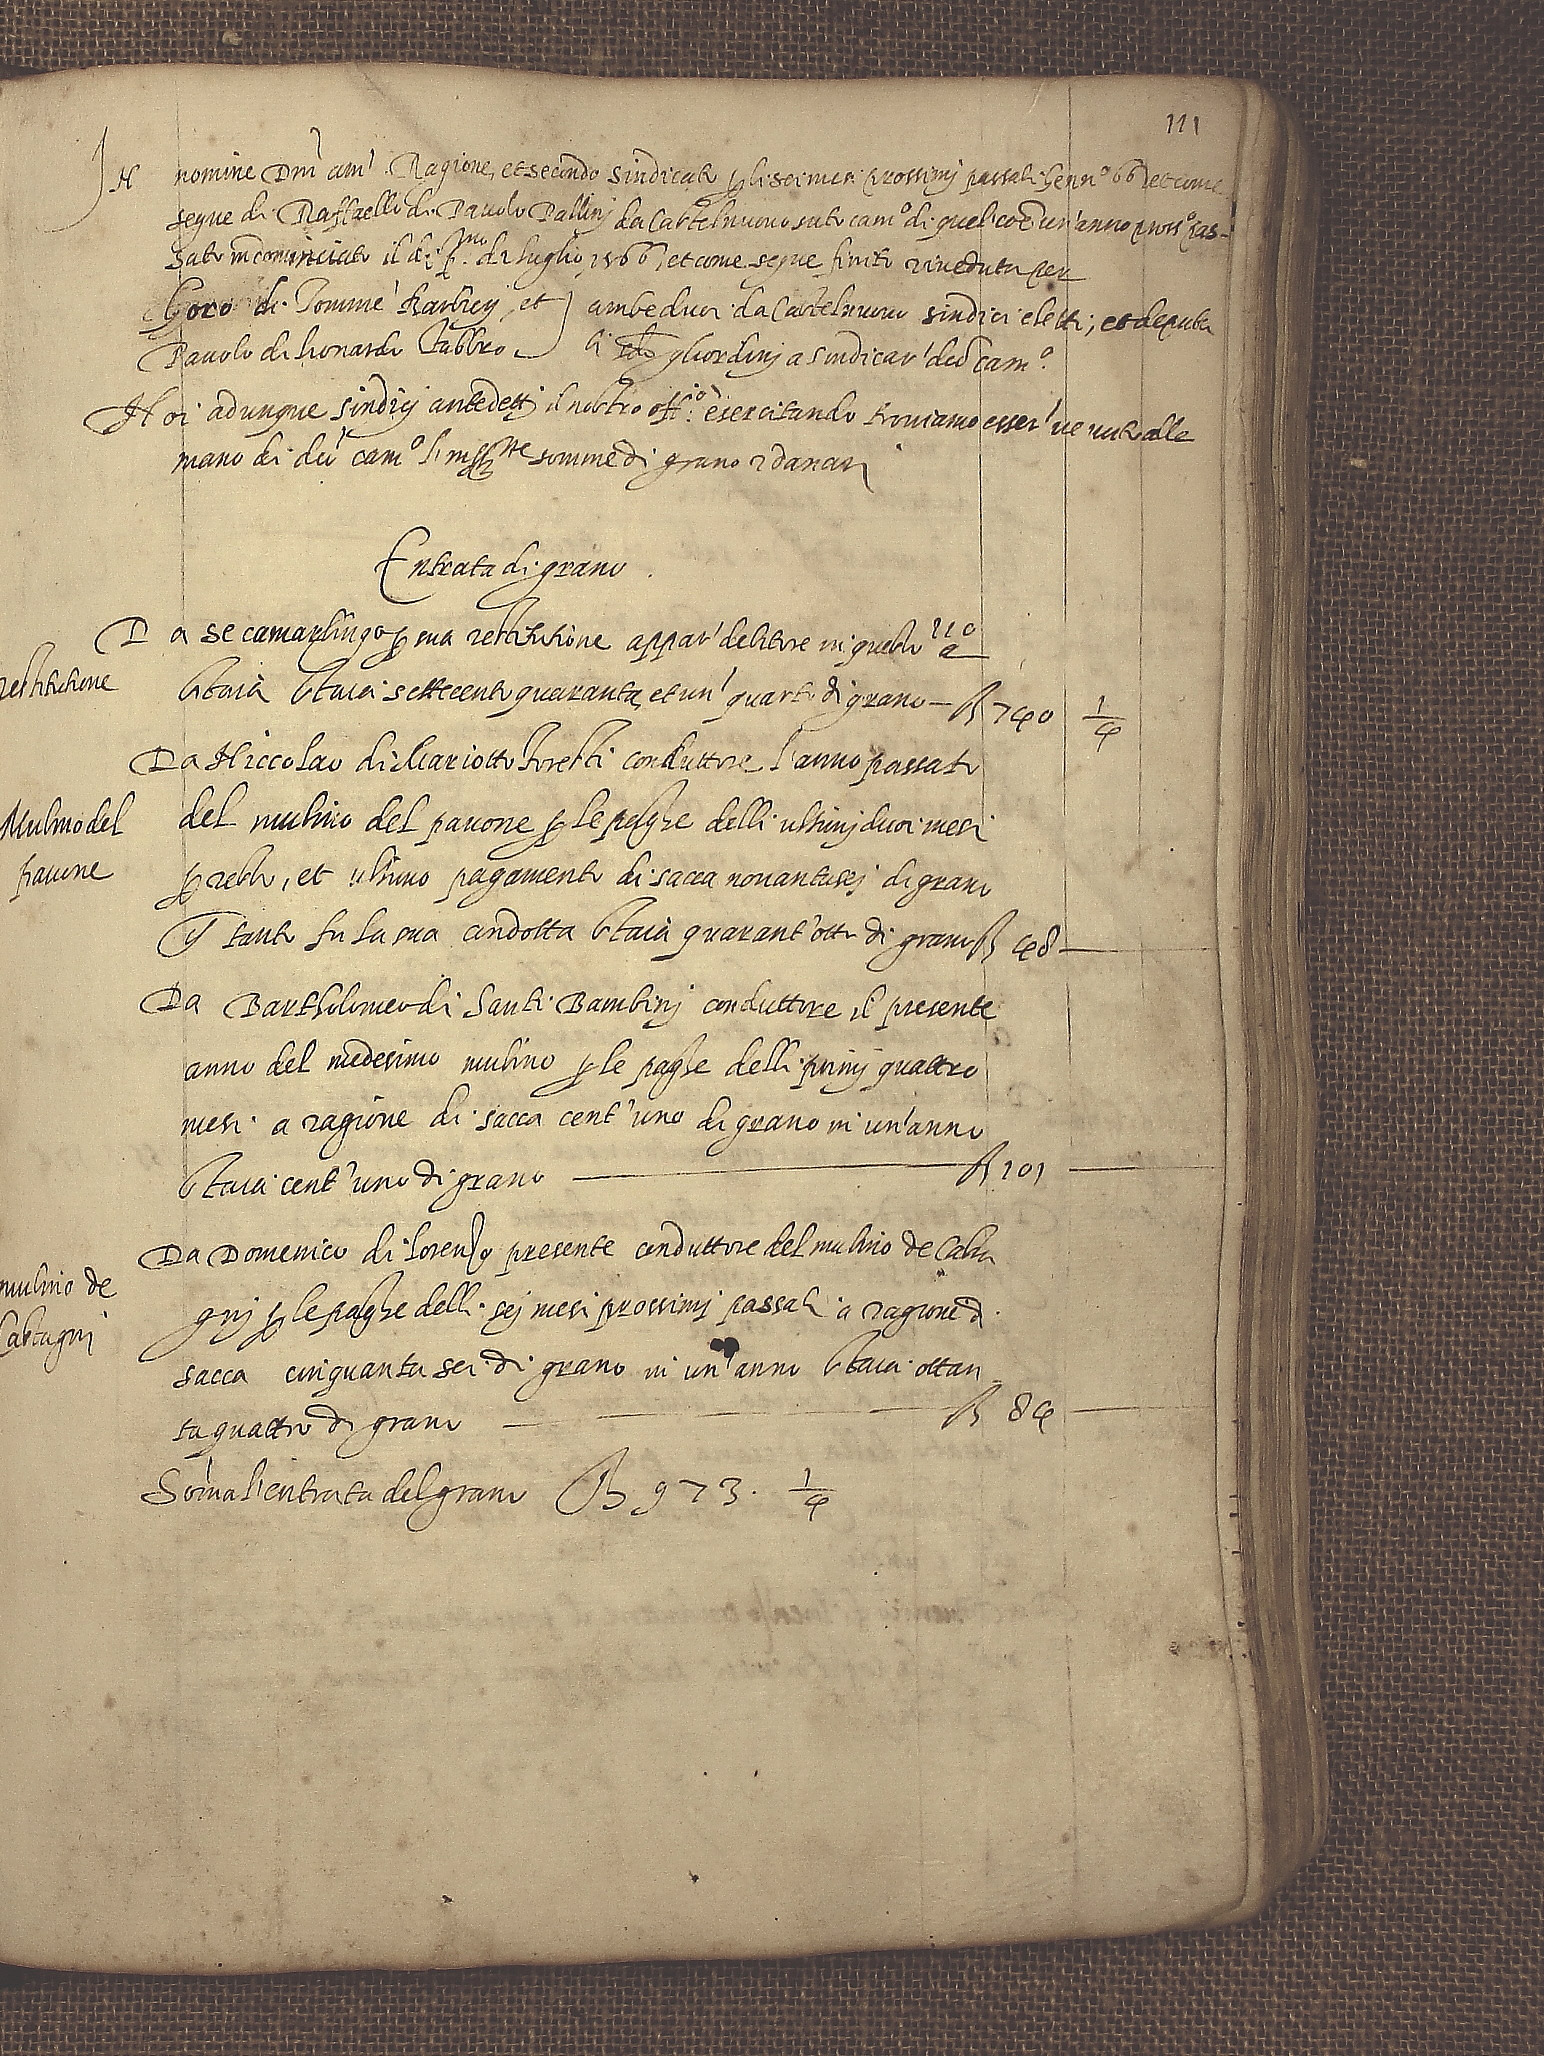 111
In nomine Dnì amì Ragione, et secondo sindicato p li sei mesi prossimi passati Genn.o 66 et come
segue di Raffaello di Pauolo Pallinj da Castelnuouo stato cam.o di quel coe un'anno pross.o pas-
sato incominciato il dì p.mo di luglio 1566, et come segue finito riueduta per
Goro di Tommè et ambeduoi da Castelnuouo sindici eletti, et deputa
Pauolo di Lionardo Fabbro ti gl'ordinj a sindicar' deto Cam.o
Noi adunque sindicj antedettj il nostro off.o esercitando trouiamo esser' uenuto alle
mano di dò cam.o l'infrtte somme di grano e danari
Entrata di grano.
Da se camarlingo p sua restitutione appar' debitore in questo 110
restitutione
staia staia settecento quaranta, et un' quarto di grano — St 740 1/4
Da Niccolao di Mariotto conduttore l'anno passato
Mulino del
pauone
del mulino del pauone p le paghe delli ultimj duoi mesi
p resto, et ultimo pagamento di sacca nouantasej di grano
p tanto fu la sua condotta staia quarant'otto di grano St 48 —
Da Bartholomeo di Santi Bambinj conduttore il presente
anno del medesimo mulino p le paghe delli primj quattro
mesi a ragione di sacca cent'uno di grano in un'anno
staia cent'uno di grano — St 101 —
Da Domenico di Lorenzo presente conduttore del mulino de Casta
mulino de
Castagni
gnj p le paghe delli sej mesi prossimj passati a ragione di
sacca cinquanta sei di grano in un'anno staia ottan
ta quattro di grano — St 84 —
Somma l'entrata del grano St 973. 1/4